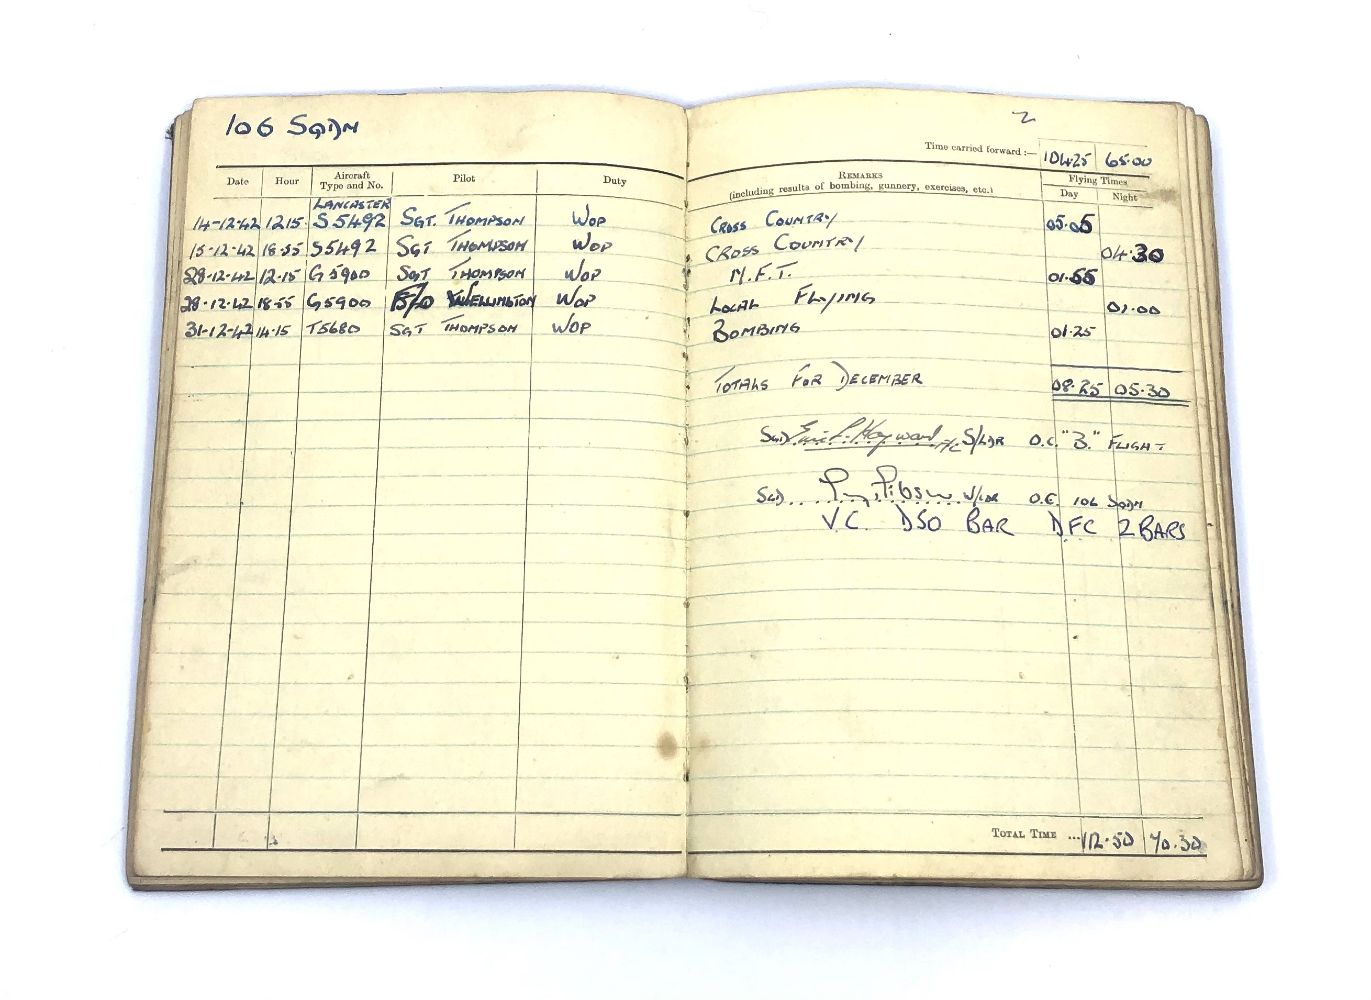 106 SQDN
2
Time carried forward :— 104.25 65.00
Date Hour Aircraft Type and No. Pilot Duty REMARKS (including results of bombing, gunnery, exercises, etc.) Flying Times Day Night
LANCASTER
14-12-42 1215 S5492 SGT. THOMPSON WOP CROSS COUNTRY 05.05
15-12-42 18.55 S5492 SGT THOMPSON WOP CROSS COUNTRY 04.30
28-12-42 12.15 G5900 SGT THOMPSON WOP N.F.T. 01.55
28-12-42 18.55 G5900 WELLINGTON WOP LOCAL FLYING 01.00
31-12-42 14.15 T5680 SGT THOMPSON WOP BOMBING 01.25
TOTALS FOR DECEMBER 08.25 05.30
SGD Eric L. Hayward F/L S/LDR O.C. "B" FLIGHT
SGD Gibson W/CDR O.C. 106 SQDN
VC. DSO BAR DFC 2 BARS
TOTAL TIME ... 112.50 70.30